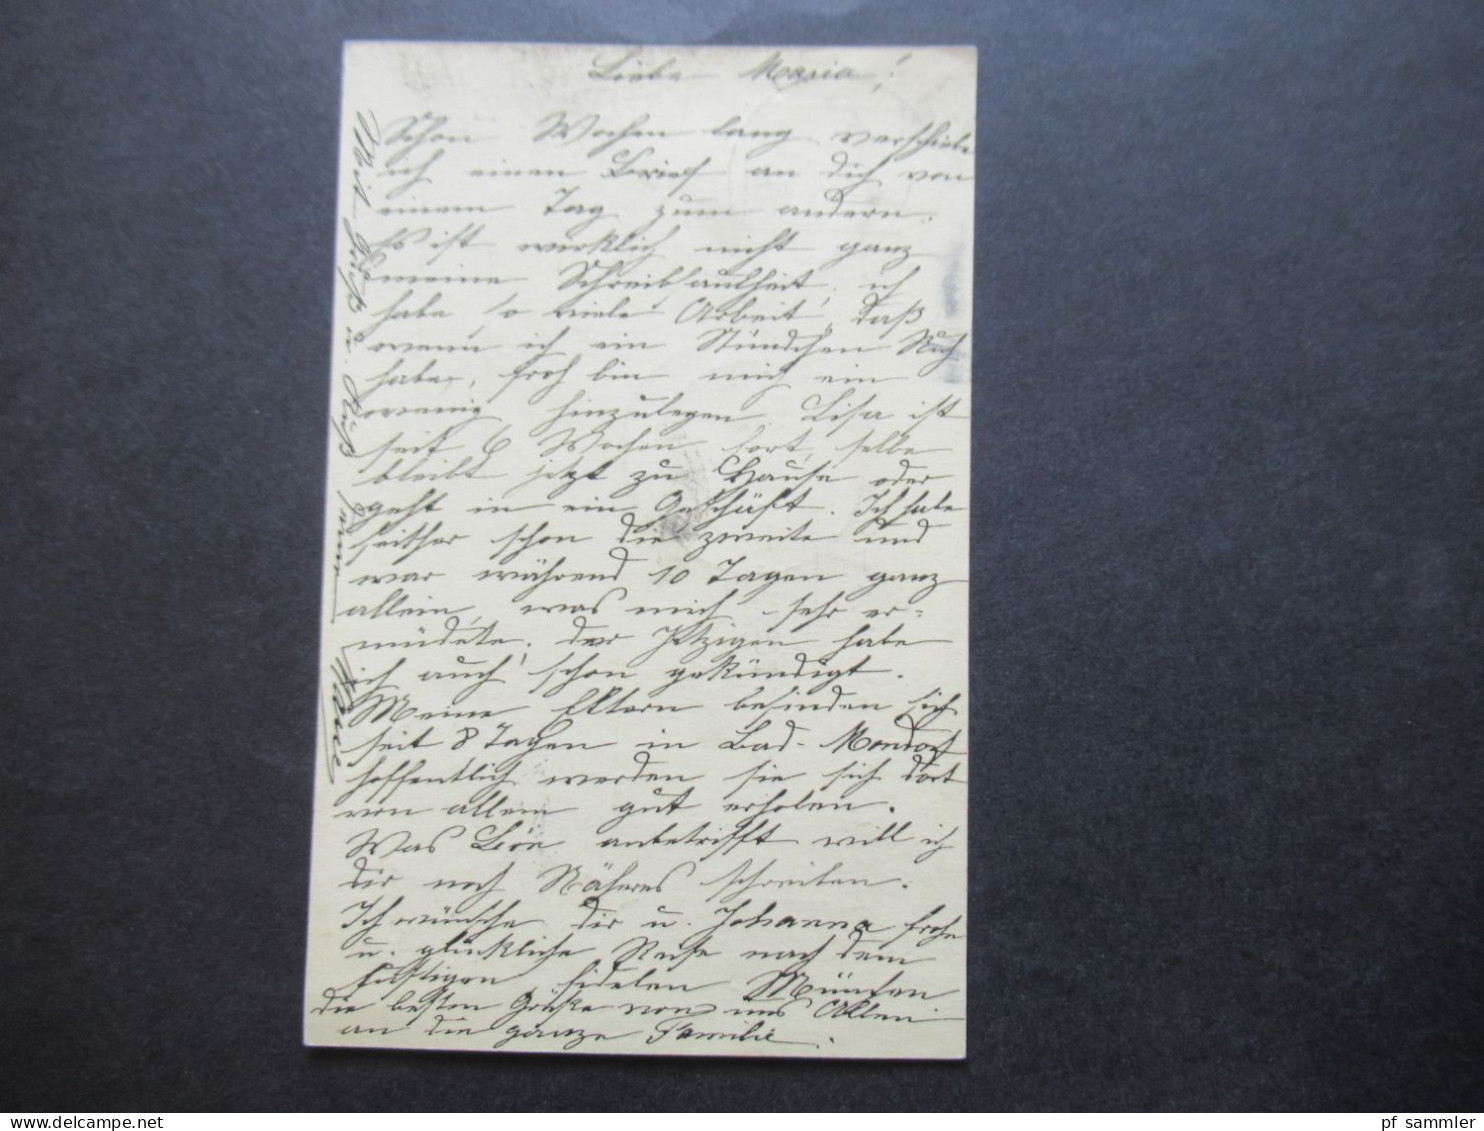 Liebe Maria!
Schon Wochen lang verschiebe
ich einen Brief an dich von
einem Tag zum andern.
Es ist wirklich nicht ganz
meine Schreibfaulheit, ich
habe so viele Arbeit, daß
wenn ich ein Stündchen Ruh
habe, froh bin mich ein
wenig hinzulegen. Lisa ist
seit 6 Wochen fort, selbe
bleibt jetzt zu Hause oder
geht in ein Geschäft. Ich habe
seither schon die zweite und
war während 10 Tagen ganz
allein, was mich sehr er=
müdete. der Jetzigen habe
ich auch schon gekündigt.
Meine Eltern befinden sich
seit 8 Tagen in Bad-Mondorf
hoffentlich werden sie sich dort
von allem gut erholen.
Was Léon anbetrifft will ich
dir noch Näheres schreiben.
Ich wünsche dir u. Johanna frohe
u. glückliche Reise nach dem
lustigen fidelen München
die besten Grüße von uns Allen
an die ganze Familie.
Mit Gruß u. Kuß
pf sammler